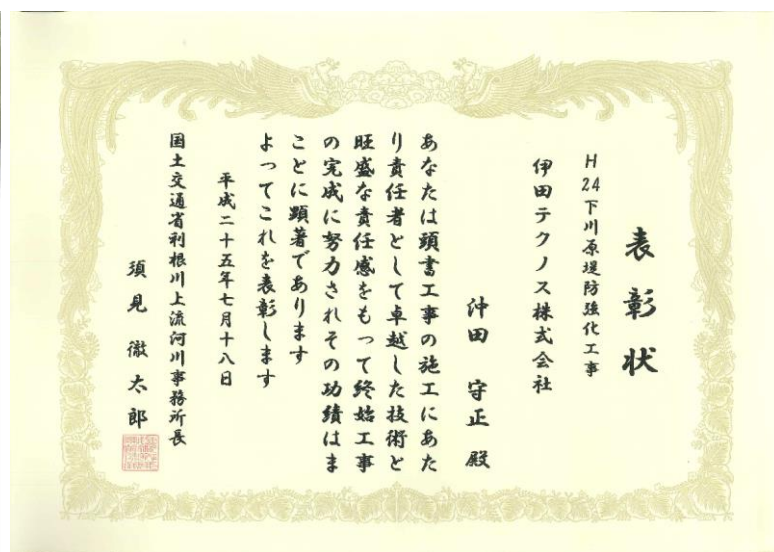 表彰状
H24下川原堤防強化工事
伊田テクノス株式会社
沖田 守正 殿
あなたは頭書工事の施工にあた
り責任者として卓越した技術と
旺盛な責任感をもって終始工事
の完成に努力されその功績はま
ことに顕著であります
よってこれを表彰します
平成二十五年七月十八日
国土交通省利根川上流河川事務所長
須見 徹太郎